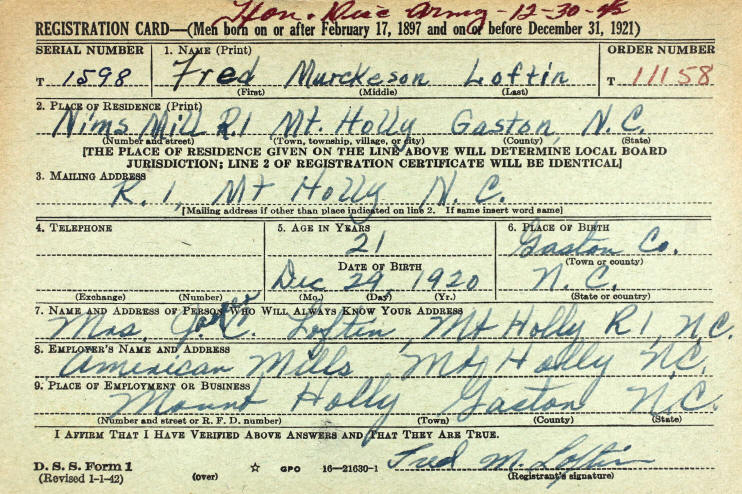 Hon. Disc Army - 12-30-45
REGISTRATION CARD—(Men born on or after February 17, 1897 and on or before December 31, 1921)
SERIAL NUMBER 1. NAME (Print) ORDER NUMBER
T 1598 Fred Murckeson Loftin T 11158
(First) (Middle) (Last)
2. PLACE OF RESIDENCE (Print)
Nims Mill R.1 Mt. Holly Gaston, N.C.
(Number and street) (Town, township, village, or city) (County) (State)
[THE PLACE OF RESIDENCE GIVEN ON THE LINE ABOVE WILL DETERMINE LOCAL BOARD
JURISDICTION; LINE 2 OF REGISTRATION CERTIFICATE WILL BE IDENTICAL]
3. MAILING ADDRESS
R. 1, Mt Holly N. C.
[Mailing address if other than place indicated on line 2. If same insert word same]
4. TELEPHONE 5. AGE IN YEARS 6. PLACE OF BIRTH
21 Gaston Co.
DATE OF BIRTH (Town or county)
Dec 29, 1920 N. C.
(Exchange) (Number) (Mo.) (Day) (Yr.) (State or country)
7. NAME AND ADDRESS OF PERSON WHO WILL ALWAYS KNOW YOUR ADDRESS
Mrs. C. Loftin, Mt Holly R1, N.C.
8. EMPLOYER'S NAME AND ADDRESS
American Mills Mt Holly N.C.
9. PLACE OF EMPLOYMENT OR BUSINESS
Mount Holly Gaston N.C.
(Number and street or R. F. D. number) (Town) (County) (State)
I AFFIRM THAT I HAVE VERIFIED ABOVE ANSWERS AND THAT THEY ARE TRUE.
D. S. S. Form 1
(Revised 1-1-42) (over) ☆ GPO 16—21630-1 Fred M. Loftin
(Registrant's signature)